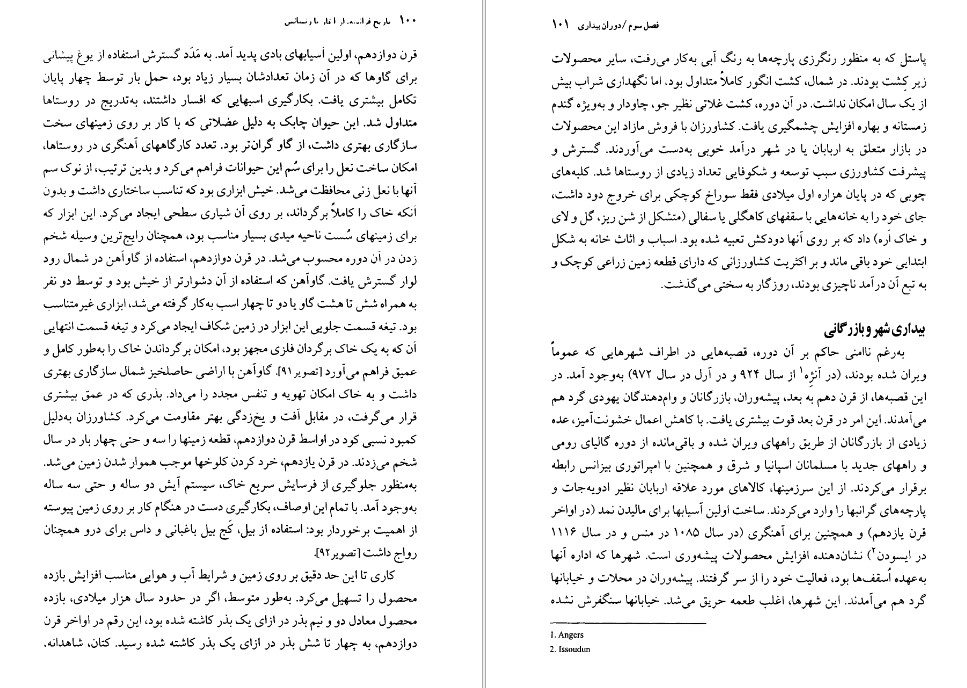 ۱۰۰ تاریخ فرانسه، از آغاز تا رنسانس
قرن دوازدهم، اولین آسیابهای بادی پدید آمد. به مَدَد گسترش استفاده از یوغ پیشانی
برای گاوها که در آن زمان تعدادشان بسیار زیاد بود، حمل بار توسط چهار پایان
تکامل بیشتری یافت. بکارگیری اسبهایی که افسار داشتند، به‌تدریج در روستاها
متداول شد. این حیوان چابک به دلیل عضلاتی که با کار بر روی زمینهای سخت
سازگاری بهتری داشت، از گاو گران‌تر بود. تعدد کارگاههای آهنگری در روستاها،
امکان ساخت نعل را برای سُم این حیوانات فراهم می‌کرد و بدین ترتیب، از نوک سم
آنها با نعل زنی محافظت می‌شد. خیش ابزاری بود که تناسب ساختاری داشت و بدون
آنکه خاک را کاملاً برگرداند، بر روی آن شیاری سطحی ایجاد می‌کرد. این ابزار که
برای زمینهای سُست ناحیه میدی بسیار مناسب بود، همچنان رایج‌ترین وسیله شخم
زدن در آن دوره محسوب می‌شد. در قرن دوازدهم، استفاده از گاوآهن در شمال رود
لوار گسترش یافت. گاوآهن که استفاده از آن دشوارتر از خیش بود و توسط دو نفر
به همراه شش تا هشت گاو یا دو تا چهار اسب به‌کار گرفته می‌شد، ابزاری غیرمتناسب
بود. تیغه قسمت جلویی این ابزار در زمین شکاف ایجاد می‌کرد و تیغه قسمت انتهایی
آن که به یک خاک برگردان فلزی مجهز بود، امکان برگرداندن خاک را به‌طور کامل و
عمیق فراهم می‌آورد [تصویر۹۱]. گاوآهن با اراضی حاصلخیز شمال سازگاری بهتری
داشت و به خاک امکان تهویه و تنفس مجدد را می‌داد. بذری که در عمق بیشتری
قرار می‌گرفت، در مقابل آفت و یخ‌زدگی بهتر مقاومت می‌کرد. کشاورزان به‌دلیل
کمبود نسبی کود در اواسط قرن دوازدهم، قطعه زمینها را سه و حتی چهار بار در سال
شخم می‌زدند. در قرن یازدهم، خرد کردن کلوخها موجب هموار شدن زمین می‌شد.
به‌منظور جلوگیری از فرسایش سریع خاک، سیستم آیش دو ساله و حتی سه ساله
به‌وجود آمد. با تمام این اوصاف، بکارگیری دست در هنگام کار بر روی زمین پیوسته
از اهمیت برخوردار بود: استفاده از بیل، کَج بیل باغبانی و داس برای درو همچنان
رواج داشت [تصویر۹۲].
کاری تا این حد دقیق بر روی زمین و شرایط آب و هوایی مناسب افزایش بازده
محصول را تسهیل می‌کرد. به‌طور متوسط، اگر در حدود سال هزار میلادی، بازده
محصول معادل دو و نیم بذر در ازای یک بذر کاشته شده بود، این رقم در اواخر قرن
دوازدهم، به چهار تا شش بذر در ازای یک بذر کاشته شده رسید. کتان، شاهدانه،
فصل سوم/دوران بیداری ۱۰۱
پاستل که به منظور رنگرزی پارچه‌ها به رنگ آبی به‌کار می‌رفت، سایر محصولات
زیر کِشت بودند. در شمال، کشت انگور کاملاً متداول بود، اما نگهداری شراب بیش
از یک سال امکان نداشت. در آن دوره، کشت غلاتی نظیر جو، چاودار و به‌ویژه گندم
زمستانه و بهاره افزایش چشمگیری یافت. کشاورزان با فروش مازاد این محصولات
در بازار متعلق به اربابان یا در شهر درآمد خوبی به‌دست می‌آوردند. گسترش و
پیشرفت کشاورزی سبب توسعه و شکوفایی تعداد زیادی از روستاها شد. کلبه‌های
چوبی که در پایان هزاره اول میلادی فقط سوراخ کوچکی برای خروج دود داشت،
جای خود را به خانه‌هایی با سقفهای کاهگلی یا سفالی (متشکل از شن ریز، گل و لای
و خاک اَره) داد که بر روی آنها دودکش تعبیه شده بود. اسباب و اثاث خانه به شکل
ابتدایی خود باقی ماند و بر اکثریت کشاورزانی که دارای قطعه زمین زراعی کوچک و
به تبع آن درآمد ناچیزی بودند، روزگار به سختی می‌گذشت.
بیداری شهر و بازرگانی
به‌رغم ناامنی حاکم بر آن دوره، قصبه‌هایی در اطراف شهرهایی که عموماً
ویران شده بودند، (در آنژه¹ از سال ۹۲۴ و در آرل در سال ۹۷۲) به‌وجود آمد. در
این قصبه‌ها، از قرن دهم به بعد، پیشه‌وران، بازرگانان و وام‌دهندگان یهودی گرد هم
می‌آمدند. این امر در قرن بعد قوت بیشتری یافت. با کاهش اعمال خشونت‌آمیز، عده
زیادی از بازرگانان از طریق راههای ویران شده و باقی‌مانده از دوره گالیای رومی
و راههای جدید با مسلمانان اسپانیا و شرق و همچنین با امپراتوری بیزانس رابطه
برقرار می‌کردند. از این سرزمینها، کالاهای مورد علاقه اربابان نظیر ادویه‌جات و
پارچه‌های گرانبها را وارد می‌کردند. ساخت اولین آسیابها برای مالیدن نمد (در اواخر
قرن یازدهم) و همچنین برای آهنگری (در سال ۱۰۸۵ در منس و در سال ۱۱۱۶
در ایسودن²) نشان‌دهنده افزایش محصولات پیشه‌وری است. شهرها که اداره آنها
به‌عهده اُسقف‌ها بود، فعالیت خود را از سر گرفتند. پیشه‌وران در محلات و خیابانها
گرد هم می‌آمدند. این شهرها، اغلب طعمه حریق می‌شد. خیابانها سنگفرش نشده
1. Angers
2. Issoudun